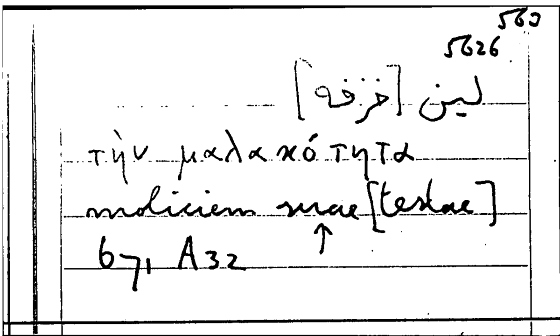 563
5626
لين [خزفه]
τὴν μαλακότητα
moliciem suae [testae]
↑
671 A32